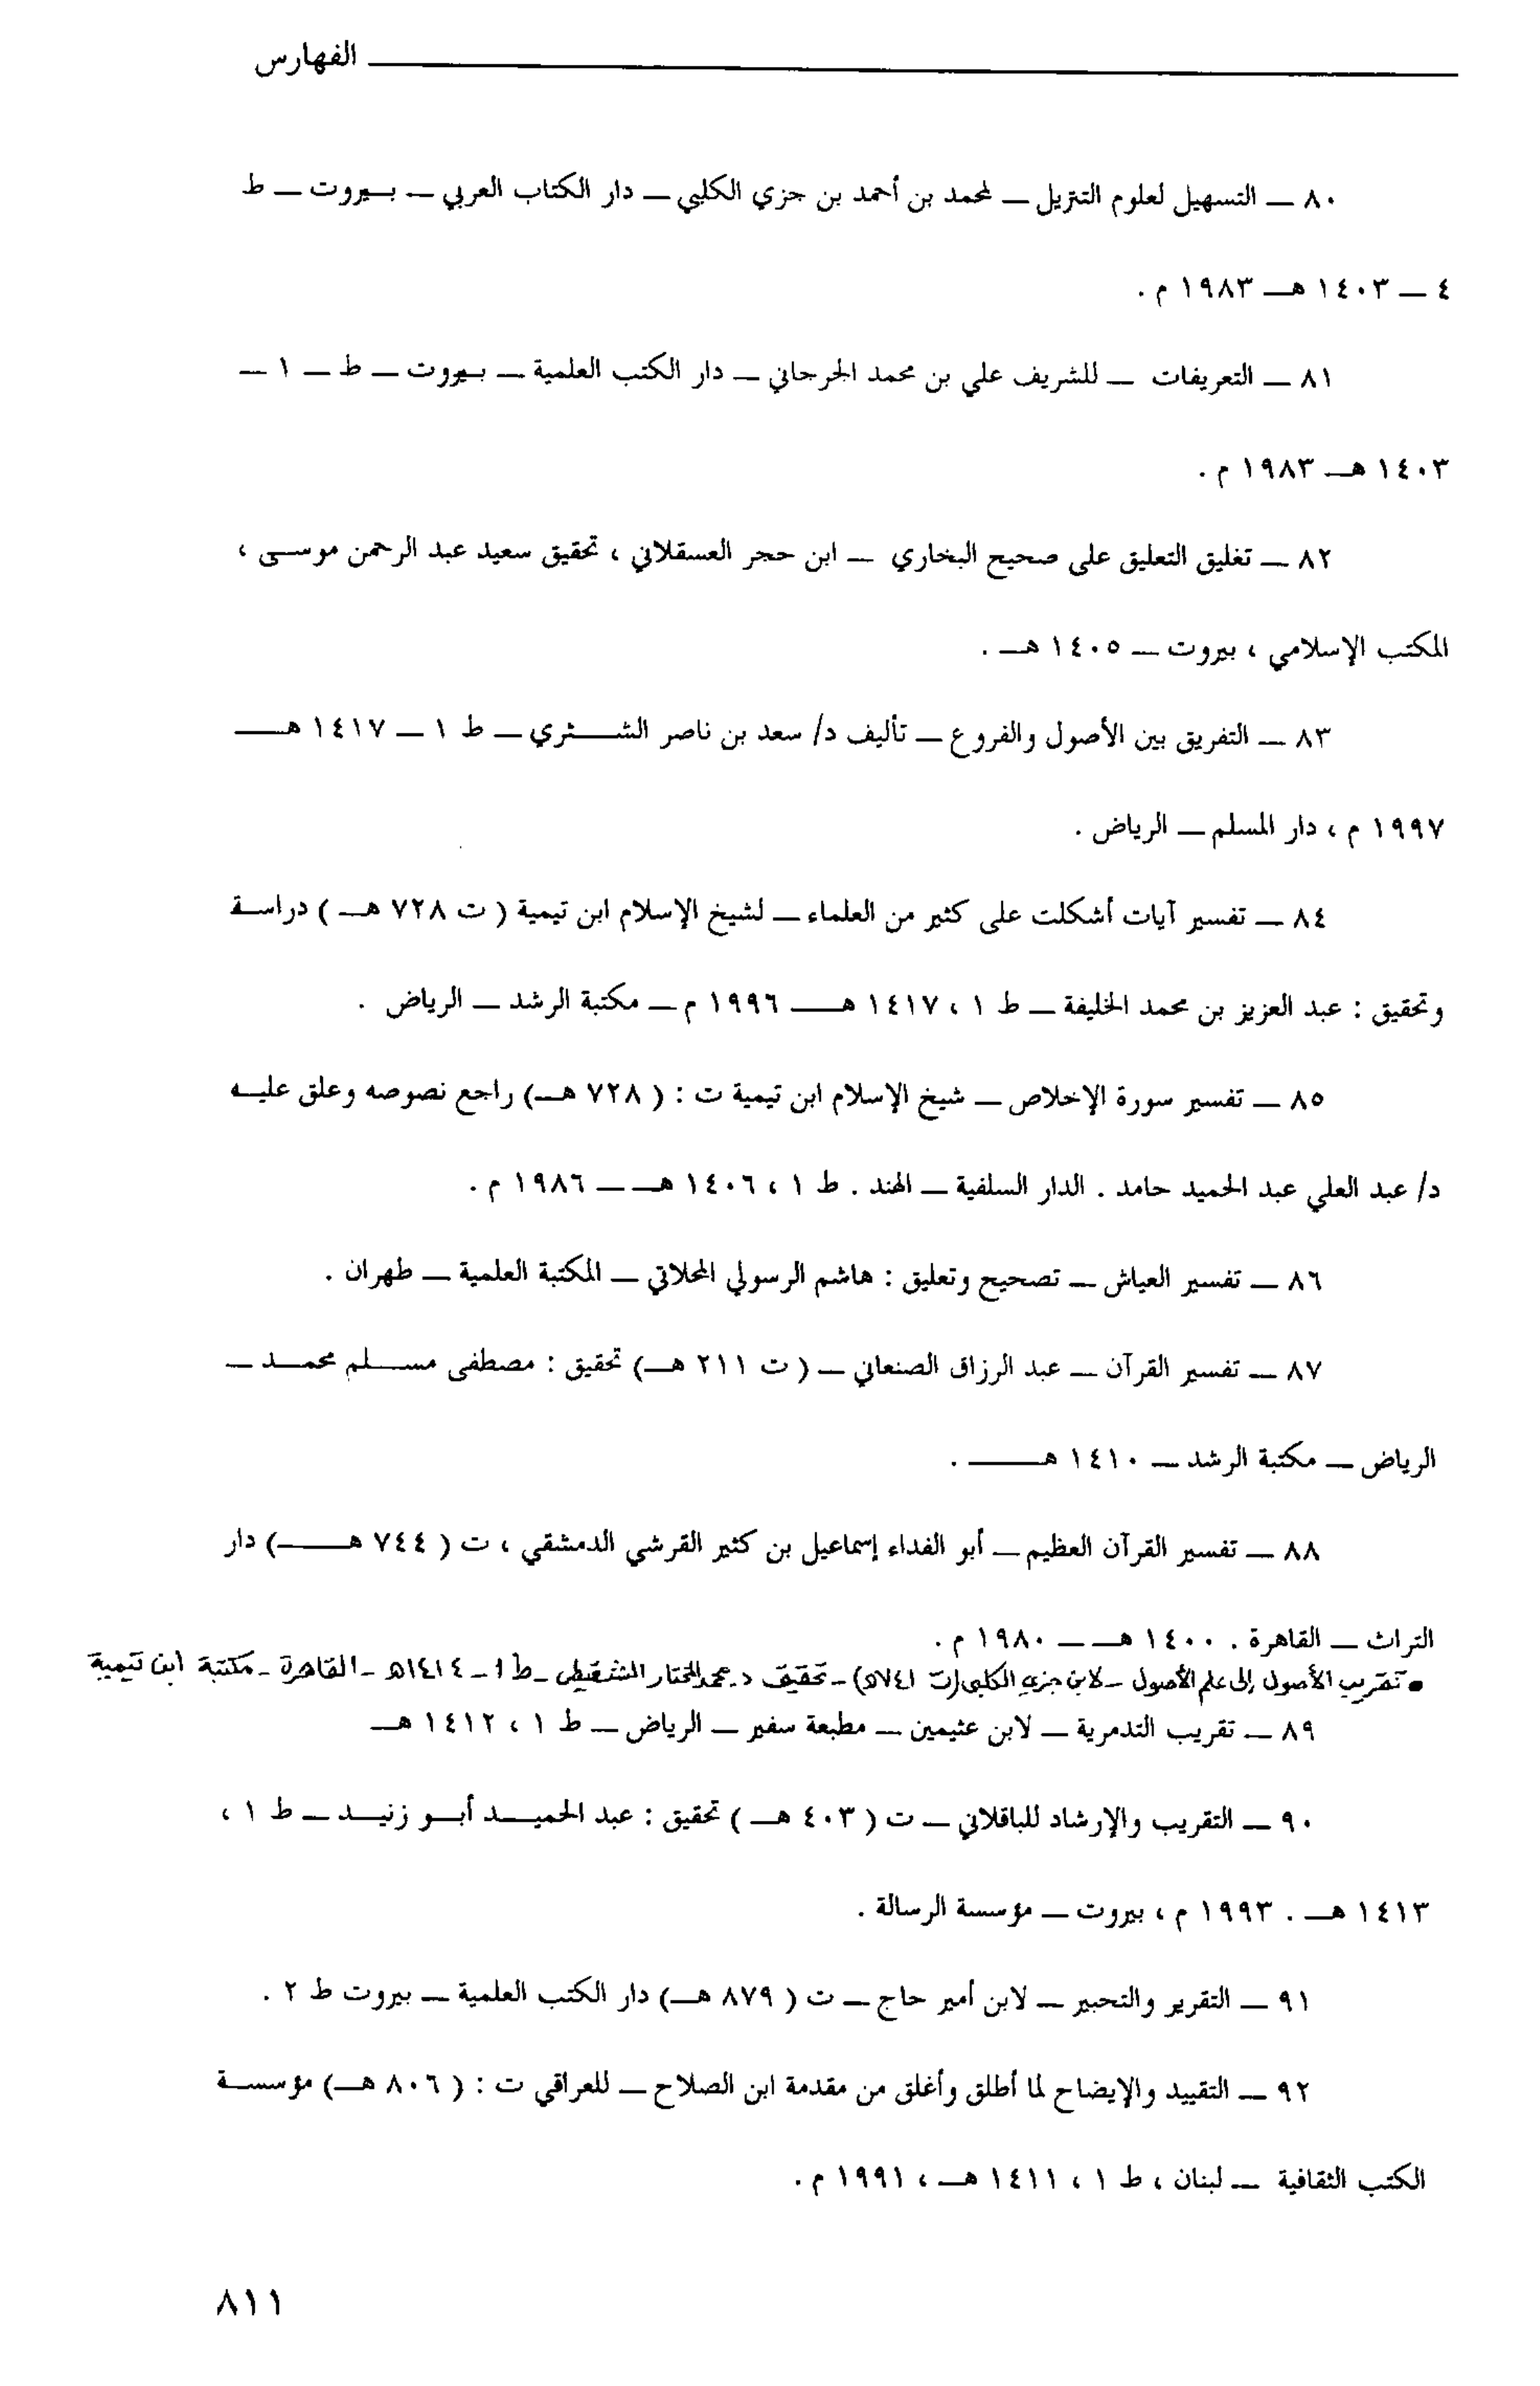 الفهارس
٨٠ – التسهيل لعلوم التنزيل – لمحمد بن أحمد بن جزي الكلبي – دار الكتاب العربي – بيروت – ط
٤ – ١٤٠٣ هـ ١٩٨٣ م .
٨١ – التعريفات – للشريف علي بن محمد الجرجاني – دار الكتب العلمية – بيروت – ط – ١ –
١٤٠٣ هـ ١٩٨٣ م .
٨٢ – تغليق التعليق على صحيح البخاري – ابن حجر العسقلاني ، تحقيق سعيد عبد الرحمن موسى ،
المكتب الإسلامي ، بيروت – ١٤٠٥ هـ .
٨٣ – التفريق بين الأصول والفروع – تأليف د/ سعد بن ناصر الشثري – ط ١ – ١٤١٧ هـ
١٩٩٧ م ، دار المسلم – الرياض .
٨٤ – تفسير آيات أشكلت على كثير من العلماء – لشيخ الإسلام ابن تيمية ( ت ٧٢٨ هـ ) دراسة
وتحقيق : عبد العزيز بن محمد الخليفة – ط ١ ، ١٤١٧ هـ ١٩٩٦ م – مكتبة الرشد – الرياض .
٨٥ – تفسير سورة الإخلاص – شيخ الإسلام ابن تيمية ت : ( ٧٢٨ هـ) راجع نصوصه وعلق عليه
د/ عبد العلي عبد الحميد حامد . الدار السلفية – الهند . ط ١ ، ١٤٠٦ هـ – ١٩٨٦ م .
٨٦ – تفسير العياش – تصحيح وتعليق : هاشم الرسولي المحلاتي – المكتبة العلمية – طهران .
٨٧ – تفسير القرآن – عبد الرزاق الصنعاني – ( ت ٢١١ هـ) تحقيق : مصطفى مسلم محمد –
الرياض – مكتبة الرشد – ١٤١٠ هـ .
٨٨ – تفسير القرآن العظيم – أبو الفداء إسماعيل بن كثير القرشي الدمشقي ، ت ( ٧٤٤ هـ) دار
التراث – القاهرة . ١٤٠٠ هـ – ١٩٨٠ م .
• تقريب الأصول إلى علم الأصول - لابن جزي الكلبي (ت ٧٤١هـ) - تحقيق د. محمد المختار الشنقيطي - ط ١ - ١٤١٤هـ - القاهرة - مكتبة ابن تيمية
٨٩ – تقريب التدمرية – لابن عثيمين – مطبعة سفير – الرياض – ط ١ ، ١٤١٢ هـ
٩٠ – التقريب والإرشاد للباقلاني – ت ( ٤٠٣ هـ ) تحقيق : عبد الحميد أبو زنيد – ط ١ ،
١٤١٣ هـ . ١٩٩٣ م ، بيروت – مؤسسة الرسالة .
٩١ – التقرير والتحبير – لابن أمير حاج – ت ( ٨٧٩ هـ) دار الكتب العلمية – بيروت ط ٢ .
٩٢ – التقييد والإيضاح لما أطلق وأغلق من مقدمة ابن الصلاح – للعراقي ت : ( ٨٠٦ هـ) مؤسسة
الكتب الثقافية – لبنان ، ط ١ ، ١٤١١ هـ ، ١٩٩١ م .
٨١١